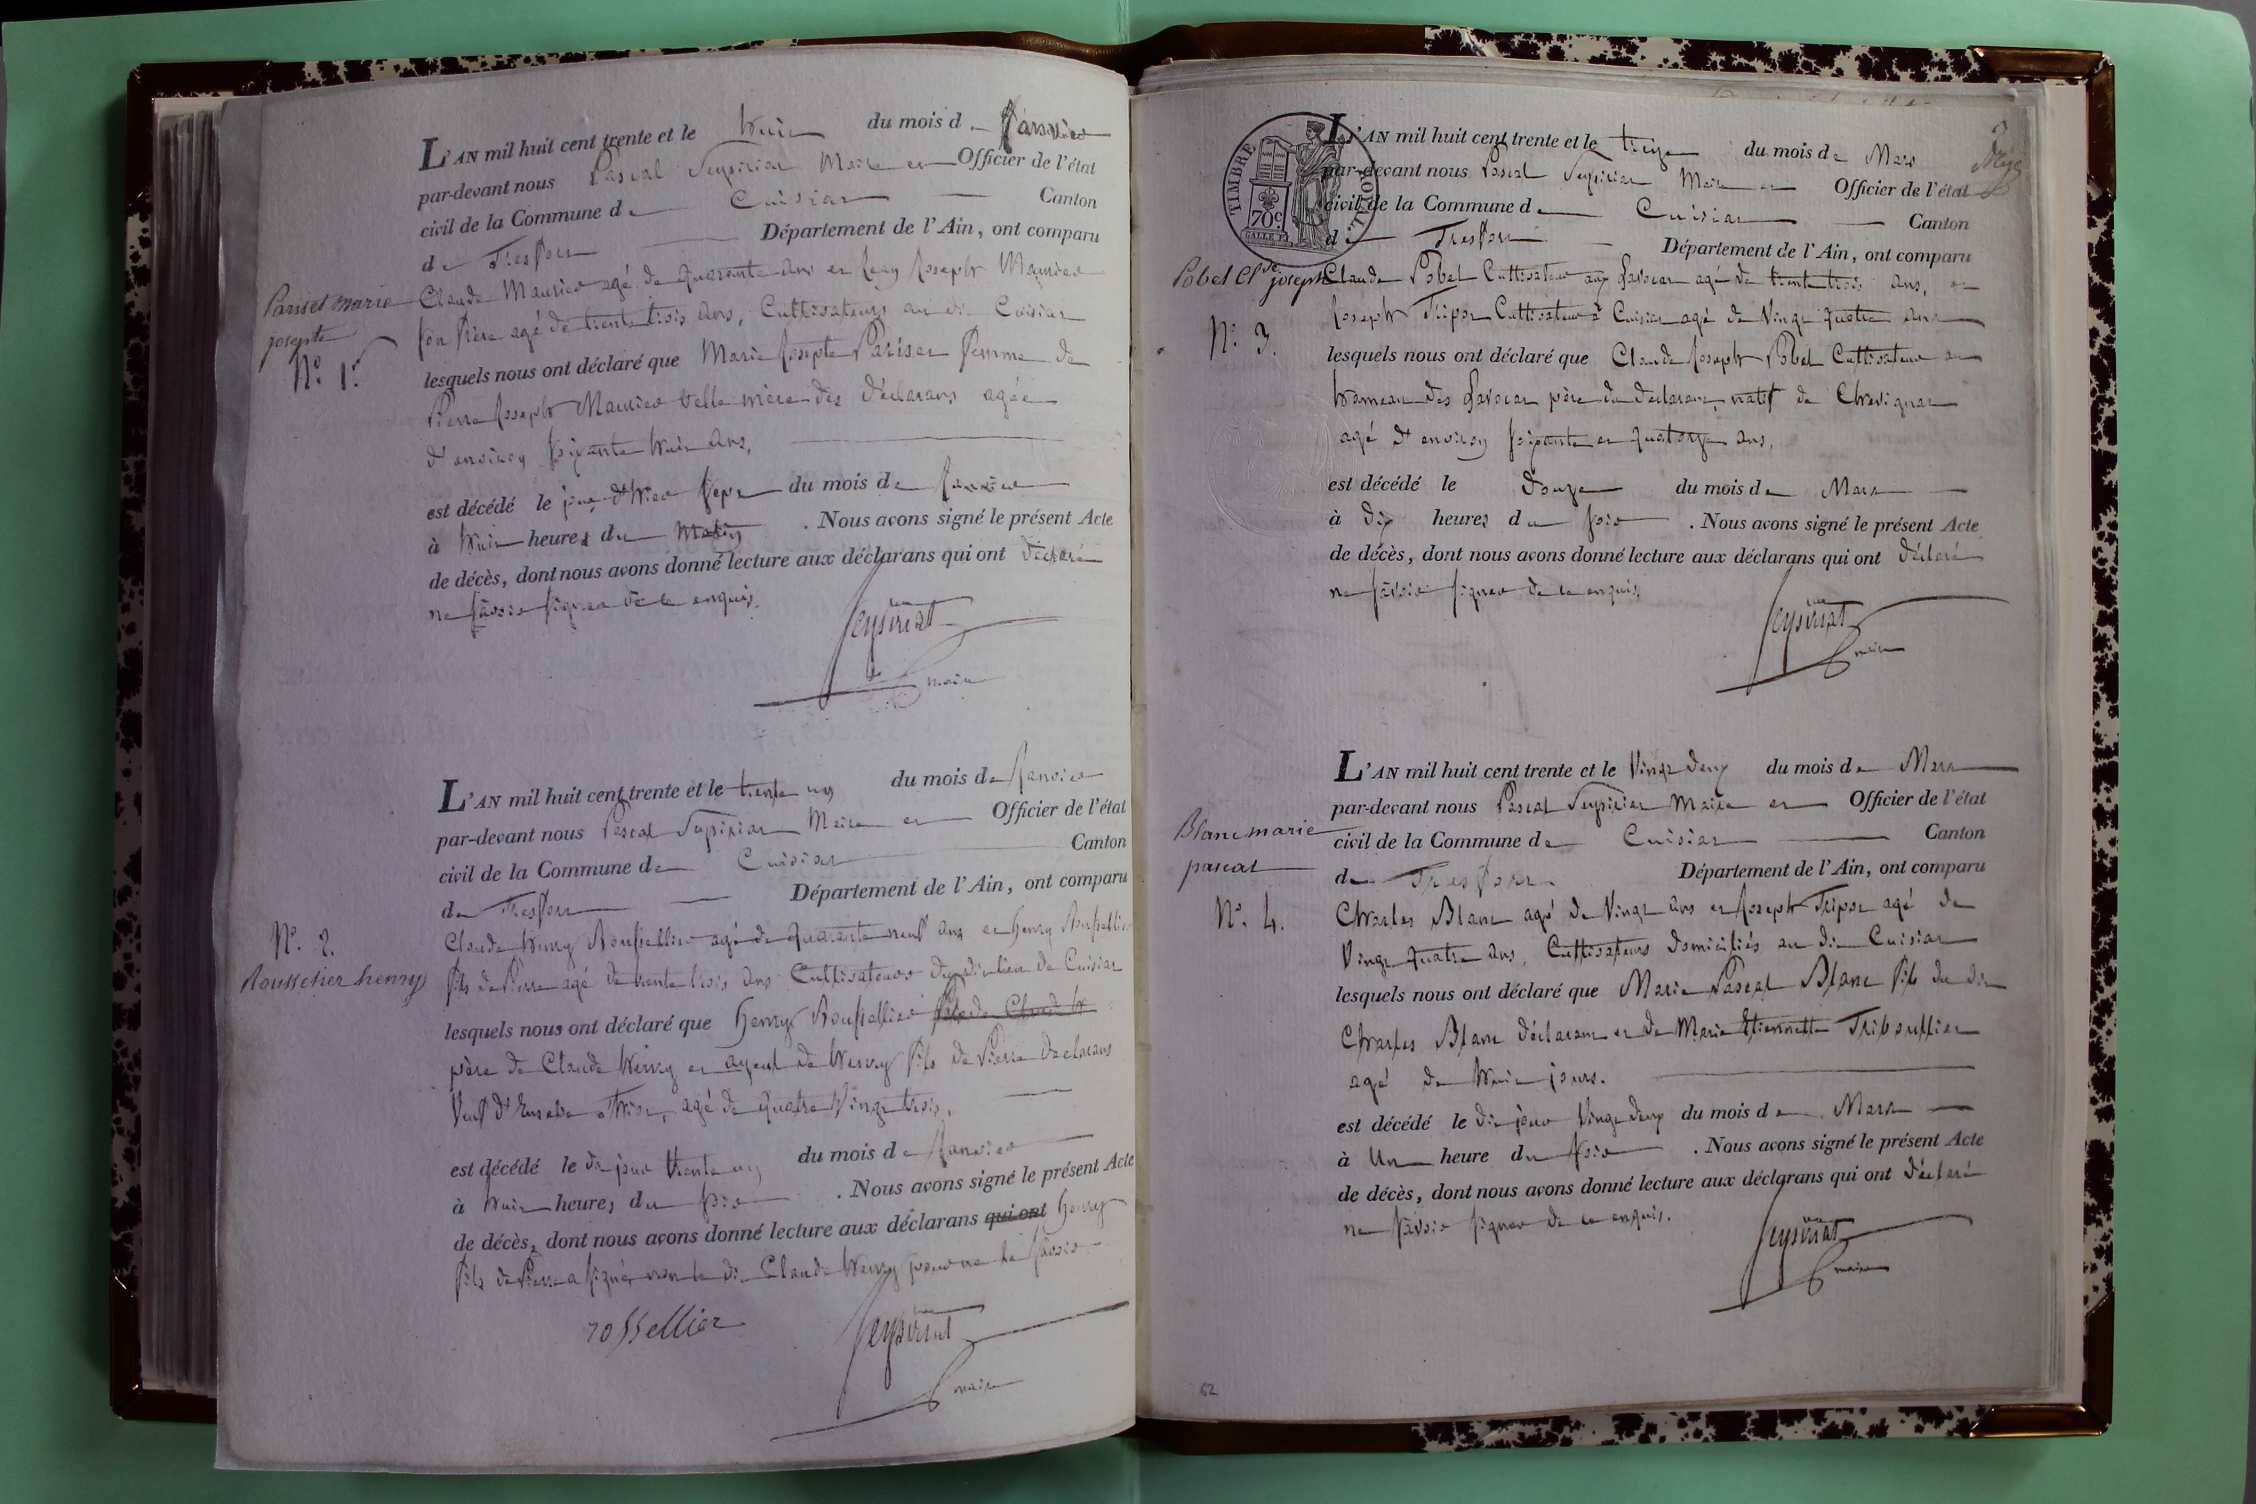 L'AN mil huit cent trente et le huit du mois de Janvier
par-devant nous Pascal Seysiriat Maire et Officier de l'état
civil de la Commune de Cuisiat Canton
de Treffort Département de l'Ain, ont comparu
Pariset marie
josepte
N.º 1.er
Claude Maurier agé de quarante ans et Jean Joseph Maurier
son frère agé de trente trois ans, Cultivateurs au dit Cuisiat
lesquels nous ont déclaré que Marie Josepte Pariset femme de
Pierre Joseph Maurier belle mère des déclarans agée
d'environ soixante huit ans,
est décédé le jour d'hier sept du mois de Janvier
à huit heures du Matin. Nous avons signé le présent Acte
de décès, dont nous avons donné lecture aux déclarans qui ont déclaré
ne savoir signer de ce enquis.
Seysiriat
maire
L'AN mil huit cent trente et le trente un du mois de Janvier
par-devant nous Pascal Seysiriat Maire et Officier de l'état
civil de la Commune de Cuisiat Canton
de Treffort Département de l'Ain, ont comparu
N.º 2.
Rousselier henry
Claude henry Roussellier agé de quarante neuf ans et henry Roussellier
fils de Pierre agé de trente trois ans Cultivateurs du dit lieu de Cuisiat
lesquels nous ont déclaré que henry Roussellier fils de Claude h
père de Claude henry et ayeul de henry fils de Pierre declarans
veuf d' agé de quatre Vingt trois,
est décédé le dit jour trente un du mois de Janvier
à huit heures du soir. Nous avons signé le présent Acte
de décès, dont nous avons donné lecture aux déclarans qui ont henry
fils de Pierre a signé non le dit Claude henry pour ne le savoir
rossellier
Seysiriat
maire
TIMBRE ROYAL
70 c
L'AN mil huit cent trente et le treize du mois de Mars
par-devant nous Pascal Seysiriat Maire et Officier de l'état
civil de la Commune de Cuisiat Canton
de Treffort Département de l'Ain, ont comparu
Pobel Cl.de joseph
N.º 3.
Claude Pobel Cultivateur aux Lavocat agé de trente trois ans, et
Joseph Tripoz Cultivateur à Cuisiat agé de Vingt quatre ans
lesquels nous ont déclaré que Claude Joseph Pobel Cultivateur au
hameau des Lavocat père du déclarant, natif de Chevignat
agé d'environ soixante et quatorze ans,
est décédé le douze du mois de Mars
à dix heures du soir. Nous avons signé le présent Acte
de décès, dont nous avons donné lecture aux déclarans qui ont déclaré
ne savoir signer de ce enquis.
Seysiriat
maire
L'AN mil huit cent trente et le Vingt deux du mois de Mars
par-devant nous Pascal Seysiriat Maire et Officier de l'état
civil de la Commune de Cuisiat Canton
de Treffort Département de l'Ain, ont comparu
Blanc marie
pascal
N.º 4.
Charles Blanc agé de Vingt ans et Joseph Tripoz agé de
Vingt quatre ans, Cultivateurs domiciliés au dit Cuisiat
lesquels nous ont déclaré que Marie Pascal Blanc fils du dit
Charles Blanc déclarant et de Marie Etiennette Triboullier
agé de huit jours.
est décédé le dit jour Vingt deux du mois de Mars
à Un heure du soir. Nous avons signé le présent Acte
de décès, dont nous avons donné lecture aux déclarans qui ont déclaré
ne savoir signer de ce enquis.
Seysiriat
maire
62